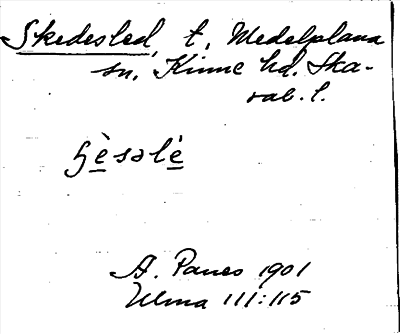 Skedesled, t. Medelplana
sn, Kinne hd. Ska-
rab. l.
ɧèsəlé
A. Panes 1901
Ulma 111:115